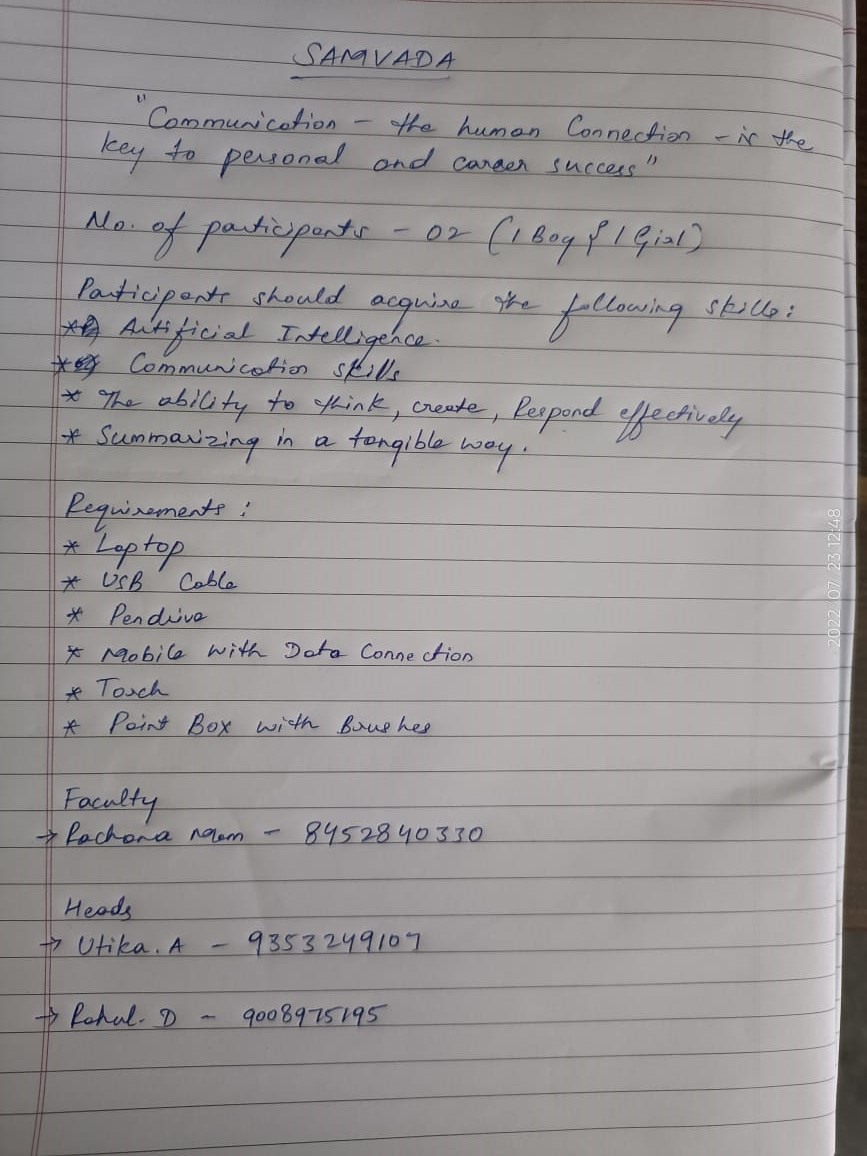 SAMVADA
"Communication - the human Connection - is the
key to personal and career success"
No. of participants - 02 (1 Boy & 1 Girl)
Participants should acquire the following skills:
* Artificial Intelligence.
* Communication skills
* The ability to think, create, Respond effectively
* Summarizing in a tangible way.
Requirements :
* Laptop
* USB Cable
* Pendrive
* Mobile with Data Connection
* Torch
* Paint Box with Brushes
Faculty
→ Rachana mam - 8452840330
Heads
→ Utika. A - 9353249107
→ Rahul. D - 9008975195
2022 07 23 12:48